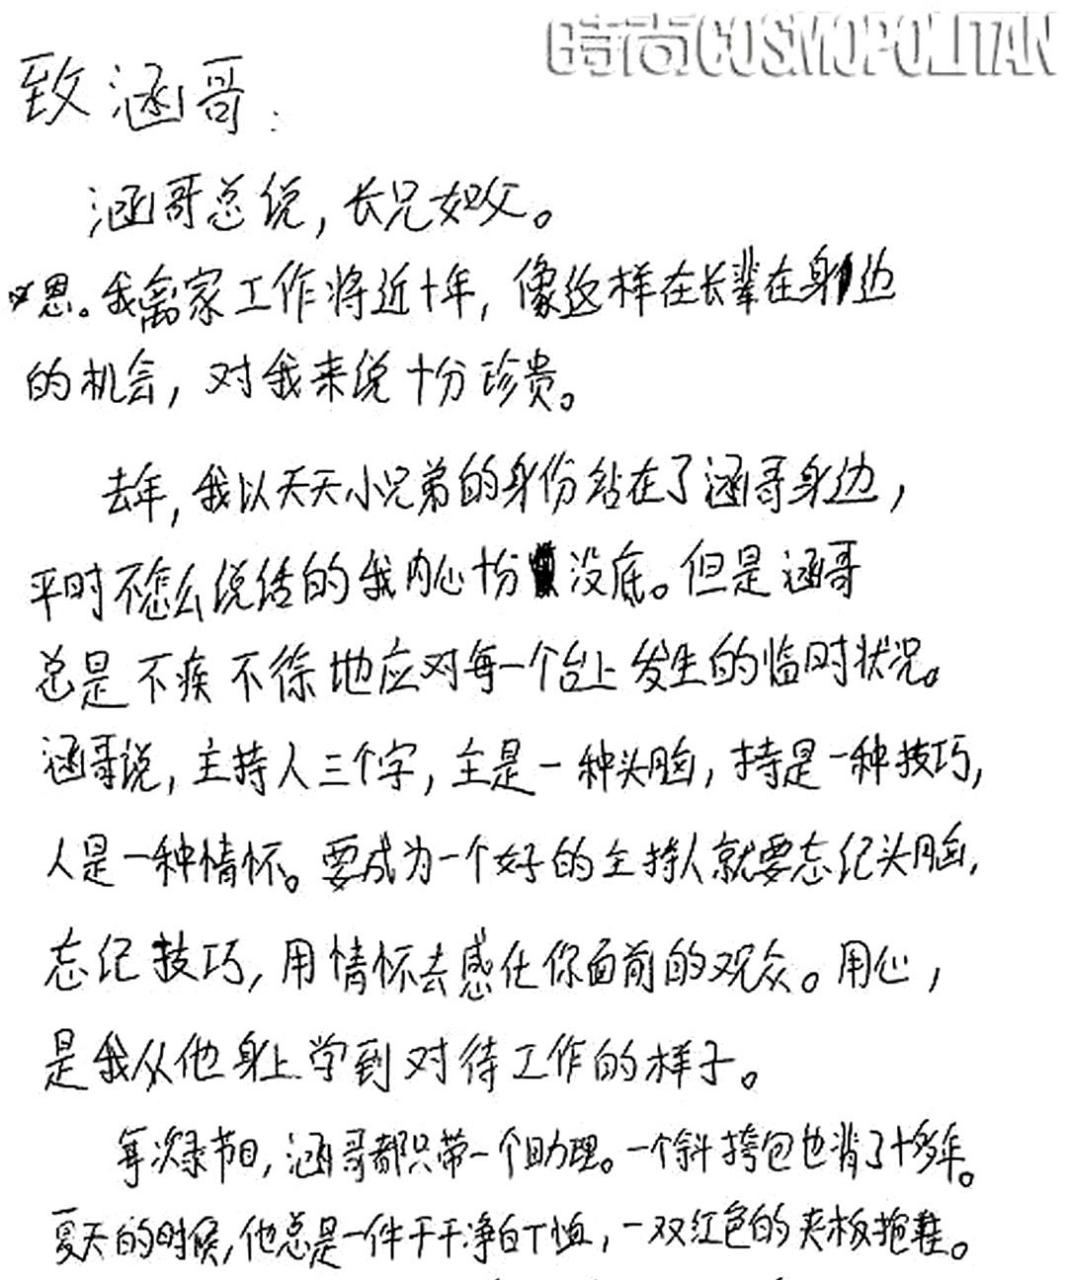 時尚COSMOPOLITAN
致涵哥：
涵哥总说，长兄如父。
恩。我离家工作将近十年，像这样在长辈在身边
的机会，对我来说十分珍贵。
去年，我以天天小兄弟的身份站在了涵哥身边，
平时不怎么说话的我内心十份没底。但是涵哥
总是不疾不徐地应对每一个台上发生的临时状况。
涵哥说，主持人三个字，主是一种头脑，持是一种技巧，
人是一种情怀。要成为一个好的主持人就要忘记头脑，
忘记技巧，用情怀去感化你面前的观众。用心，
是我从他身上学到对待工作的样子。
每次录节目，涵哥都只带一个助理。一个斜挎包也背了十多年。
夏天的时候，他总是一件干干净白T恤，一双红色的夹板拖鞋。